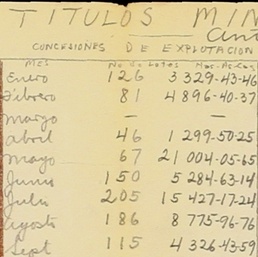 TITULOS MIN
CONCESIONES DE EXPLOTACION
MES No de Lotes Has-As-Cas
Enero 126 3 329-43-46
Febrero 81 4 896-40-37
Marzo — —
Abril 46 1 299-50-25
Mayo 67 21 004-05-65
Junio 150 5 284-63-14
Julio 205 15 427-17-24
Agosto 186 8 775-96-76
Sept 115 4 326-43-59